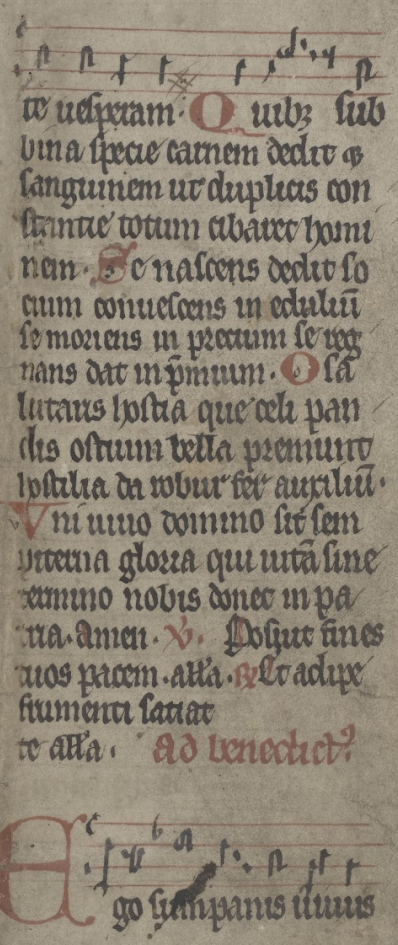 te uesperam. Quibꝫ sub
bina specie carnem dedit ⁊
sanguinem ut duplicis con
stantie totum cibaret homi
nem. Se nascens dedit so
cium conuescens in eduliū
se moriens in precium se reg
nans dat in p̄mium. O sa
lutaris hostia que celi pan
dis ostium bella premunt
hostilia da robur fer auxiliū.
Vni trino domino sit sem
piterna gloria qui uitā sine
termino nobis donet in pa
tria. Amen. ℣. Posuit fines
tuos pacem. all'a. ℟ Et adipe
frumenti satiat
te all'a. Ad benedict'
Ego sum panis uiuus